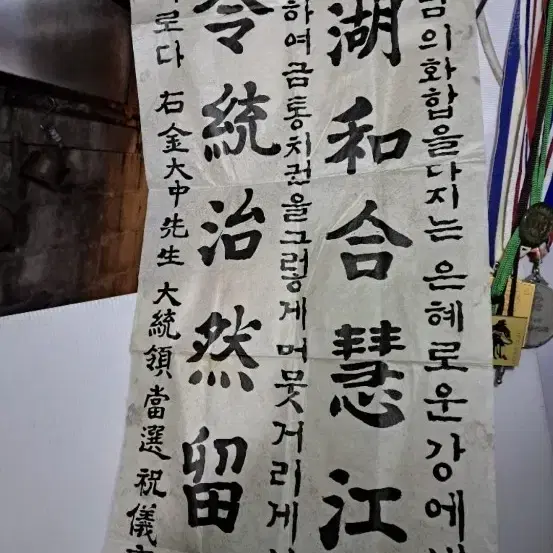 의화합을다지는 은혜로운강에
湖和合慧江
하여금통치권을그렇게머뭇거리게
令統治然留
로다 右金大中先生 大統領當選祝儀